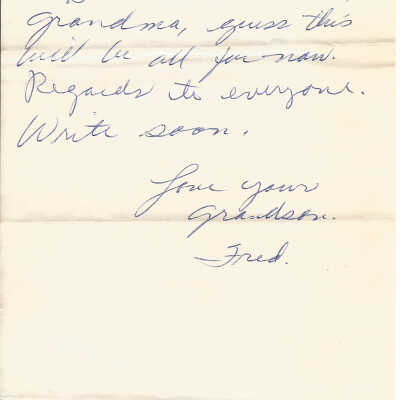 Grandma, guess this
will be all for now.
Regards to everyone.
Write soon.
Love your
Grandson.
Fred.